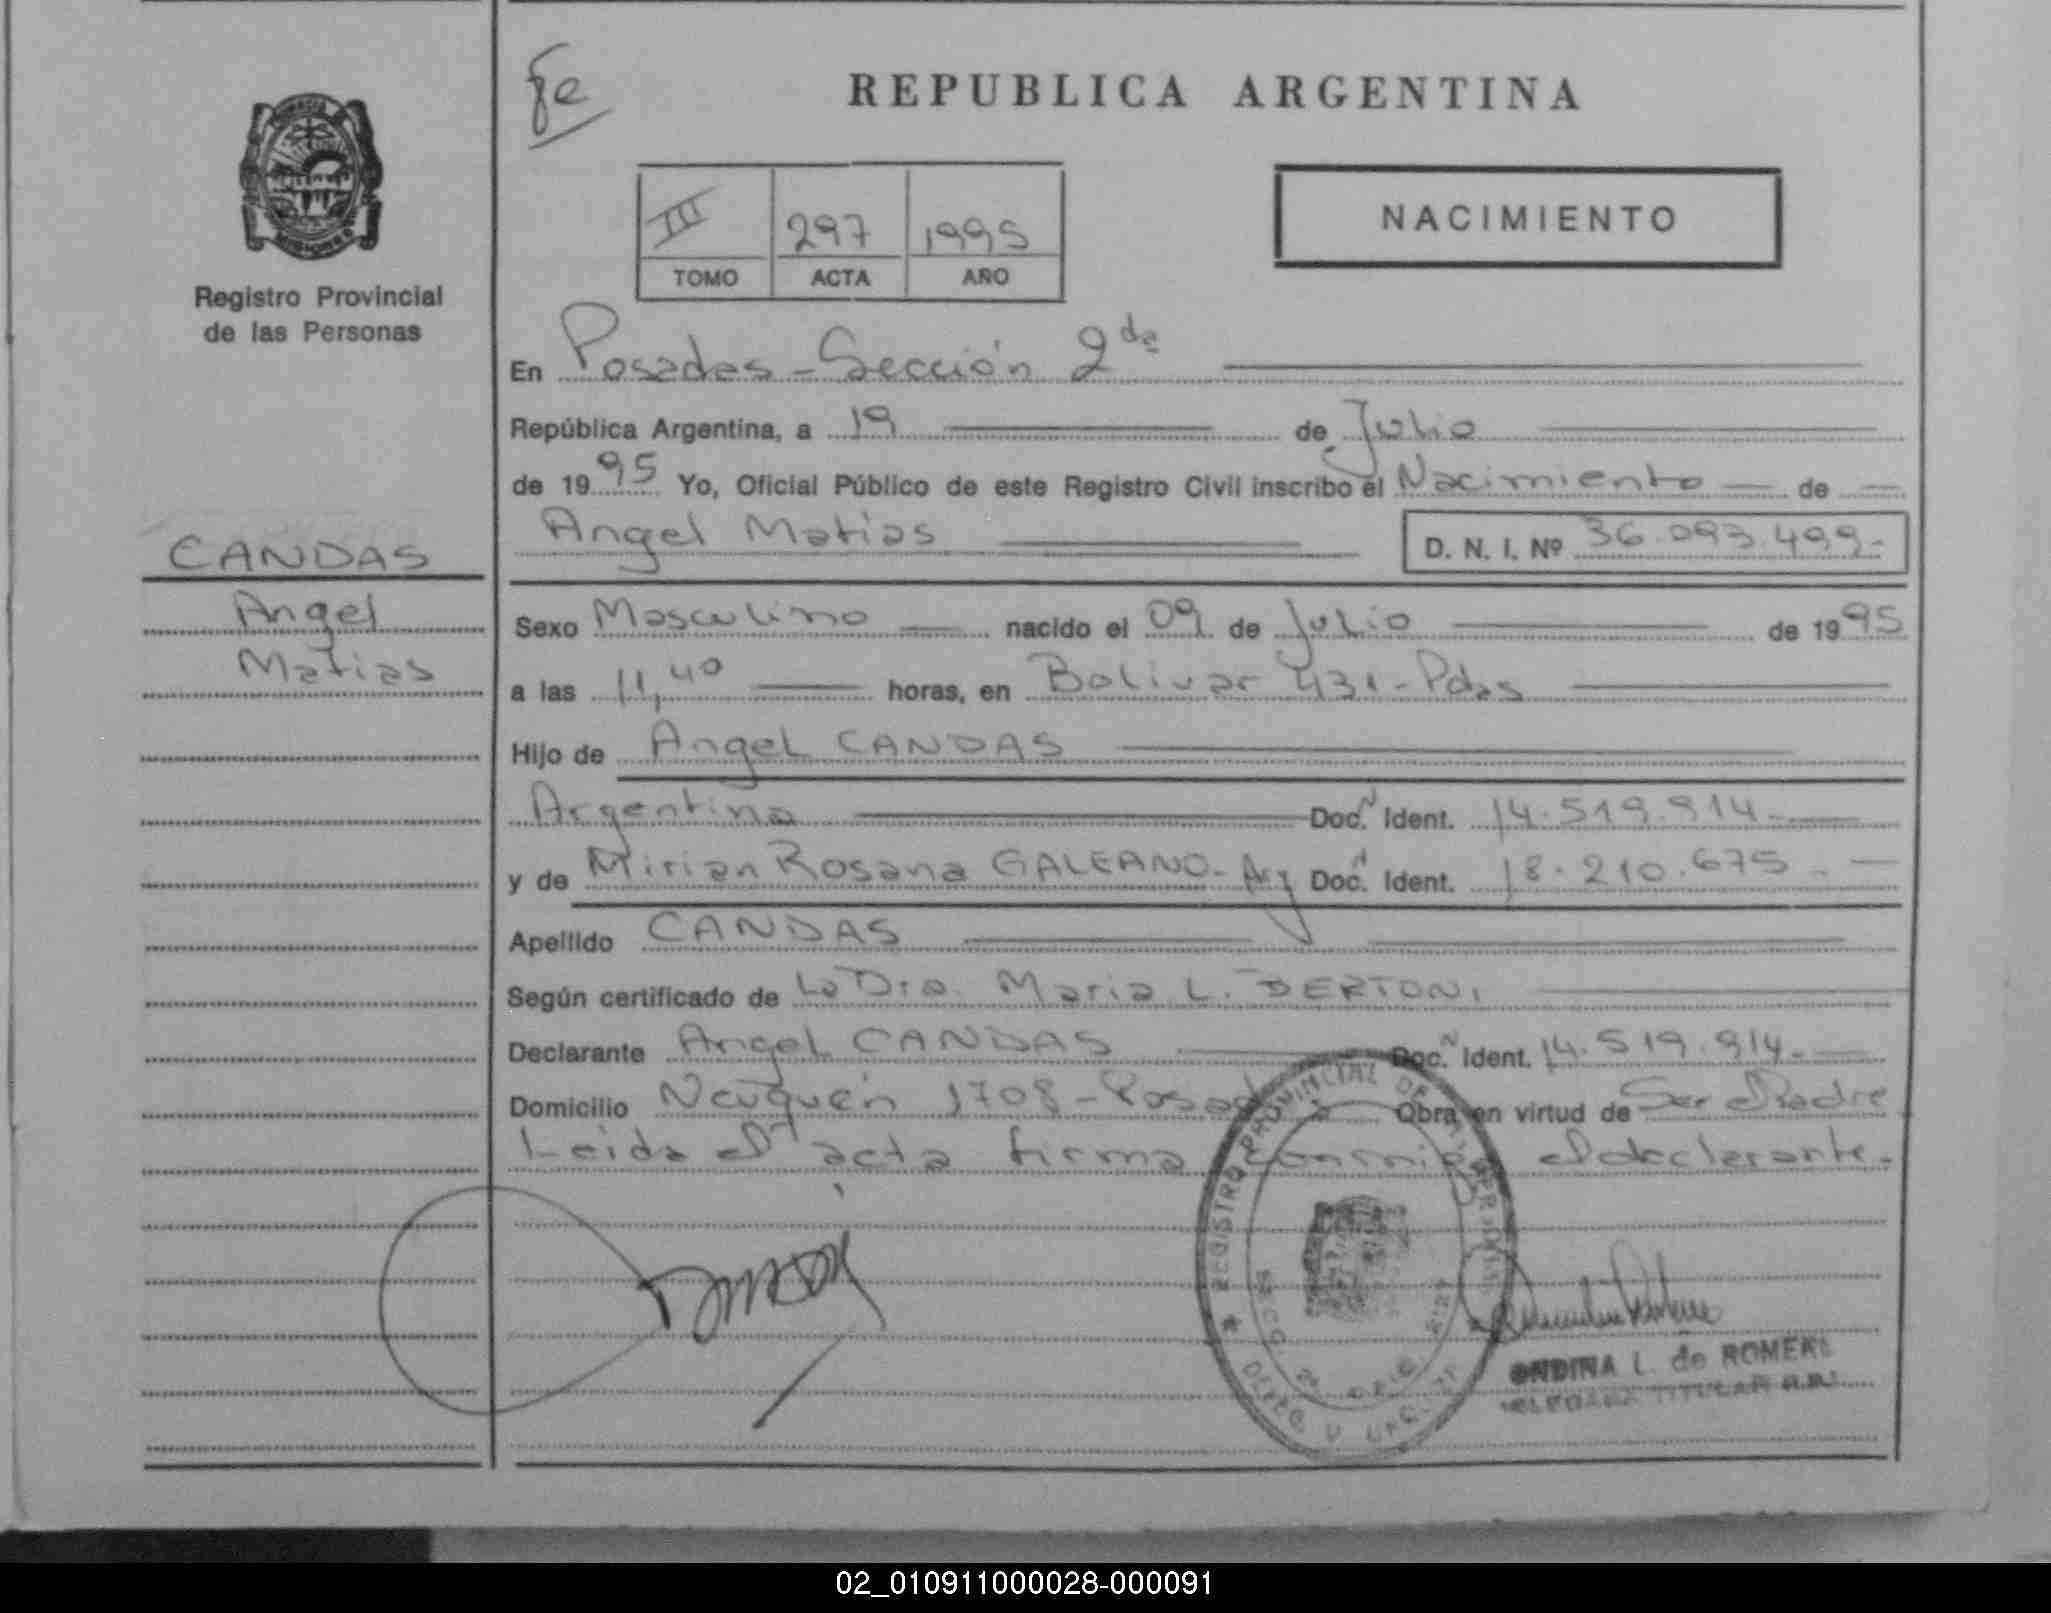 fe
REPUBLICA ARGENTINA
III 297 1995
TOMO ACTA AÑO
NACIMIENTO
Registro Provincial
de las Personas
En Posadas - Sección 2da
República Argentina, a 19 de Julio
de 1995 Yo, Oficial Público de este Registro Civil inscribo el Nacimiento de
Angel Matias D. N. I. Nº 36.093.499.-
CANDAS
Angel
Matias
Sexo Masculino nacido el 09 de Julio de 1995
a las 11,40 horas, en Bolivar 431 - Pdas
Hijo de Angel CANDAS
Argentina Doc. N Ident. 14.519.914.-
y de Mirian Rosana GALEANO - Arg Doc. N Ident. 18.210.675.-
Apellido CANDAS
Según certificado de La Dra. Maria L. BERTONI
Declarante Angel CANDAS Doc. N Ident. 14.519.914.-
Domicilio Neuquén 1708 - Posadas Obra en virtud de Ser Padre
Leida el acta firma conmigo el declarante.
REGISTRO PROVINCIAL DE LAS PERSONAS
ONDINA L. de ROMERO
DELEGADA TITULAR
02_010911000028-000091